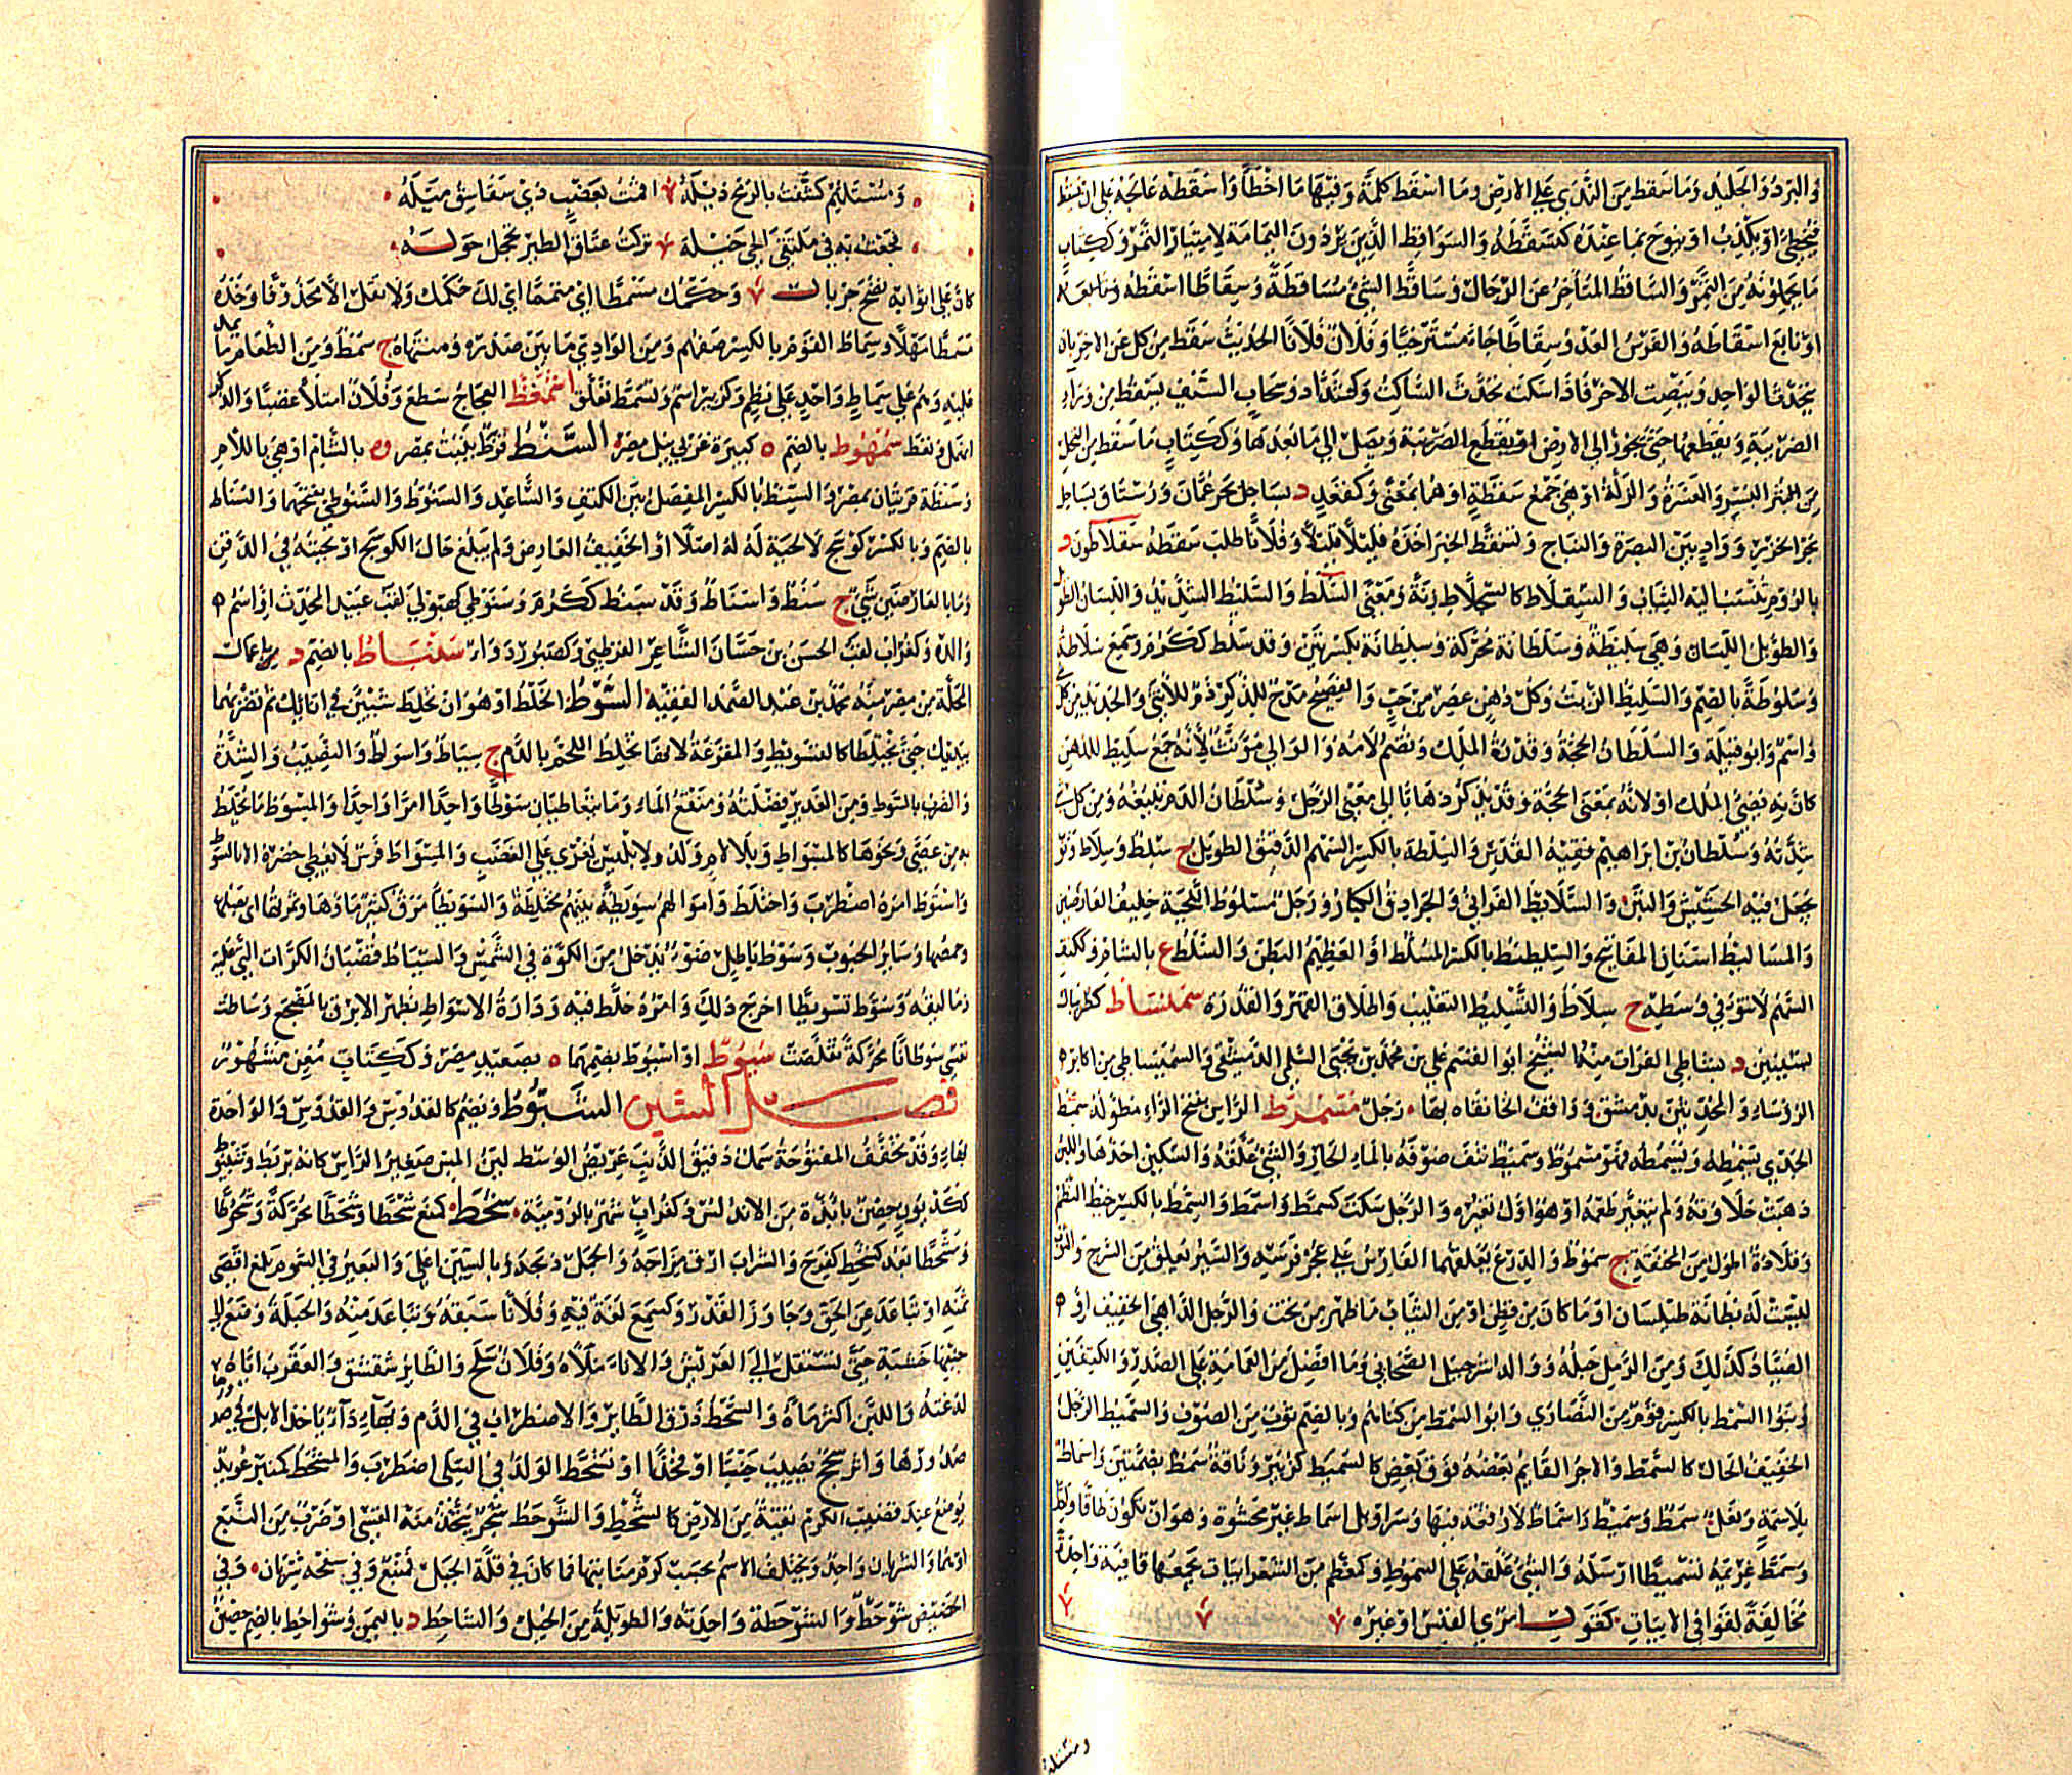 والبرد والجليد وما سقط من الندى على الارض وما اسقط كلمة وفيها ما اخطأ واسقطه عالجه على ان يسقط
فيخطئ او يكذب او يبوح بما عنده كتسقطه والسواقط الذين يردون اليمامة لامتيار التمر وككتاب
ما يحملونه من التمر والساقط المتأخر عن الرجال وساقط الشئ مساقطة وسقاطا اسقطه
او تابع اسقاطه والفرس العدو سقاطا جاء مسترخيا وفلان فلانا الحديث سقط من كل على الاخر بان
يتحدث الواحد وينصت الاخر فاذا سكت تحدث الساكت وكشداد وسحاب السيف يسقط من وراء
الضريبة ويقطعها حتى يجوز الى الارض او يقطع الضريبة ويصل الى ما بعدها وككتاب ما سقط من النخل
من البسر والعثرة والزلة او هى جمع سقطة او هما بمعنى وكمقعد د بساحل بحر عمان ورستاق بساحل
بحر الخزر وواد بين البصرة والنباج وتسقط الخبر اخذه قليلا قليلا وفلانا طلب سقطه سقلاطون د
بالروم تنسب اليه الثياب والسقلاط كالسجلاط زنة ومعنى السلط والسليط الشديد واللسان الطويل
والطويل اللسان وهى سليطة وسلطانة محركة وسلطانة بكسرتين وقد سلط ككرم وسمع سلاطة
وسلوطة بالضم والسليط الزيت وكل دهن عصر من حب والفصيح مدح للذكر ذم للانثى والحديد من كل
واسم وابو قبيلة والسلطان الحجة وقدرة الملك وتضم لامه والوالى مؤنث لانه جمع سليط للدهن
كان به يضئ الملك او لانه بمعنى الحجة وقد يذكر ذهابا الى معنى الرجل وسلطان الدم تبيغه ومن كل شئ
شدته وسلطان بن ابراهيم فقيه القدس والسلطة بالكسر السهم الدقيق الطويل ج سلط وسلاط وثوب
يجعل فيه الحشيش والتبن والسلائط الفرانى والجرادق الكبار ورجل مسلوط اللحية خفيف العارضين
والمساليط اسنان المفاتيح والسلطيط بالكسر المسلط او العظيم البطن والسلط ع بالشام وككتف
السهم لا نتوء فى وسطه ج سلاط والتسليط التغليب واطلاق القهر والقدرة سميساط كطربال
بسينين د بشاطئ الفرات منه الشيخ ابو القسم على بن محمد بن يحيى السلمى الدمشقى السميساطى من اكابر
الرؤساء والمحدثين بدمشق وواقف الخانقاه بها رجل مسمرط الراس بفتح الراء مطوله سمط
الجدى يسمطه ويسمطه فهو مسموط وسميط نتف صوفه بالماء الحار والشئ علقه والسكين احدها واللبن
ذهبت حلاوته ولم يتغير طعمه او هو اول تغيره والرجل سكت كسمط واسمط والسمط بالكسر خيط النظم
وقلادة اطول من المخنقة ج سموط والدرع يعلقها الفارس على عجز فرسه والسير يعلق من السرج والثوب
ليست له بطانة طيلسان او ما كان من قطن او من الثياب ما ظهر من تحت والرجل الداهى الخفيف او
الصياد كذلك ومن الرمل حبله ووالد شرحبيل الصحابى وما افضل من العمامة على الصدر والكتفين
وبنو السمط بالكسر قوم من النصارى وابو السمط من كناهم وبالضم ثوب من الصوف والسميط الرجل
الخفيف الحال كالسمط والاجر القائم بعضه فوق بعض كالسميط كزبير وناقة سمط بضمتين واسماط
بلا سمة ونعل سمط وسميط واسماط لا رقعة فيها وسراويل اسماط غير محشوة وهو ان يكون طاقا واحدا
وسمط غريمه تسميطا ارسله والشئ علقه على السموط وكمعظم من الشعر ابيات تجمعها قافية واحدة
مخالفة لقوافى الابيات كقول امرئ القيس او غيره
ومستلئم
ومستلئم كشفت بالرمح ذيله اقمت بعضب ذى سفاسق ميله
فجعت به فى ملتقى الحى خيله تركت عتاق الطير تحجل حوله
كان على اثوابه نضح جريال وحكمك مسمطا اى متمما اى لك حكمك ولا تقل الا محذوفا وخذه
مسمطا سهلا وسماط القوم بالكسر صفهم ومن الوادى ما بين صدره ومنتهاه ج سمط ومن الطعام ما يمد
عليه وهم على سماط واحد على نظم وكزبير اسم وتسمط تعلق اسمعط العجاج سطع وفلان امتلأ غضبا والذكر
اتمهل ونعظ سمهوط بالضم ة كبيرة غربى نيل مصر السنط قرظ ينبت بمصر وة بالشام او هى باللام
وسنطة قريتان بمصر والسنط بالكسر المفصل بين الكتف والساعد والسنوط والسنوطى بفتحهما والسناط
بالضم وبالكسر كوسج لا لحية له اصلا او الخفيف العارض ولم يبلغ حال الكوسج او لحيته فى الذقن
وما بالعارضين شئ ج سنط واسناط وقد سنط ككرم وسنوطى كهيولى لقب عبيد المحدث او اسم
والده وكغراب لقب الحسن بن حسان الشاعر القرطبى وكصبور دواء سنباط بالضم د باعمال
المحلة من مصر منه محمد بن عبد الصمد الفقيه السوط الخلط او هو ان تخلط شيئين فى انائك ثم تضربهما
بيدك حتى يختلطا كالتسويط والمقرعة لانها تخلط اللحم بالدم ج سياط واسواط والنصيب والشدة
والضرب بالسوط ومن الغدير فضلته ومنقع الماء وما يتعاطيان سوطا واحدا امرا واحدا والمسوط ما يخلط
به من عصى ونحوها كالمسواط وبلا لام ولد لابليس يغرى على الغضب والمسواط فرس لا يعطى حضره الا بالسوط
واستوط امره اضطرب واختلط واموالهم سويطة بينهم مختلطة والسويطاء مرق كثير ماؤها وثمرتها اى بصلها
وحمصها وسائر الحبوب وسوط باطل ضوء يدخل من الكوة فى الشمس والسياط قضبان الكراث التى عليه
زماليقه وسوط تسويطا اخرج ذلك وامره خلط فيه ودارة الاسواط بظهر الابرق بالمضجع وساطت
نفسى سوطانا محركة تقلصت سيوط او اسيوط بضمهما ة بصعيد مصر وككتاب مغن مشهور
فصل الشين الشبوط ويضم كالقدوس والقدوس والواحدة
بهاء وقد تخفف المفتوحة سمك دقيق الذنب عريض الوسط لين المس صغير الراس كانه بربط وشبوط
ككديون حصن بابدة من الاندلس وكغراب شهر بالرومية شحط كمنع شحطا وشحطا محركة وشحوطا
ومشحطا بعد كشحط كفرح والشراب ارق مزاجه والجمل ذبحه وبالسين اعلى والبعير فى السوم بلغ اقصى
ثمنه او تباعد عن الحق وجاوز القدر وكسمع لغة فيه وفلانا سبقه وتباعد منه والحبلة وضع الى
جنبها خشبة حتى تستقل الى العريش والاناء ملأه وفلان سلح والطائر شقشق والعقرب اياه
لدغته واللبن اكثر ماءه والشحط ذرق الطائر والاضطراب فى الدم وبهاء داء ياخذ الابل فى صد
صدورها واثر سحج يصيب جنبا او فخذا او تشحط الولد فى السلى اضطرب والمشحط كمنبر عويد
يوضع عند قضيب الكرم يقيه من الارض كالشحط والشوحط شجر يتخذ منه القسى او ضرب من النبع
او هما والشريان واحد ويختلف الاسم بحسب كرم منابتها فما كان فى قلة الجبل فنبع وفى سفحه شريان وفى
الحضيض شوحط والشوحطة واحدته والطويلة من الخيل والشاحط د باليمن وشواحط بالضم حصن